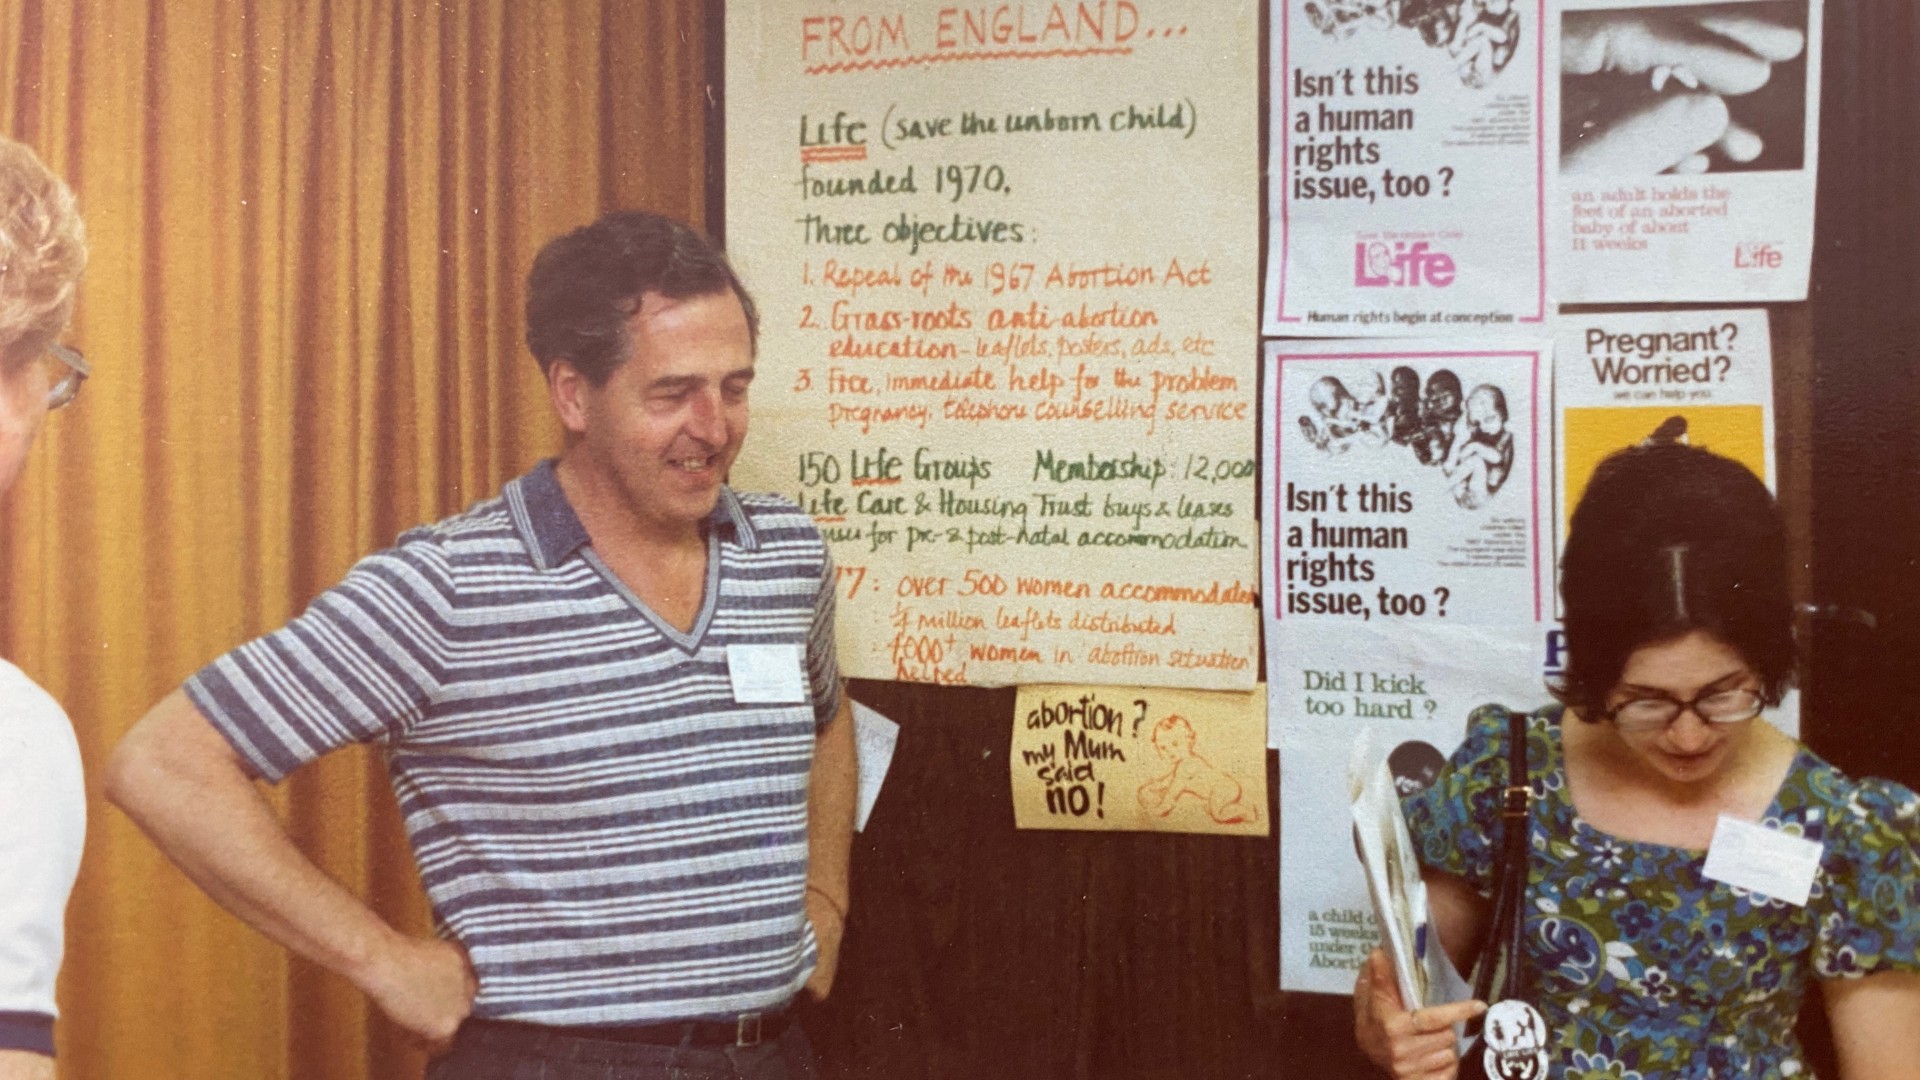 FROM ENGLAND...
Life (save the unborn child)
founded 1970.
Three objectives:
1. Repeal of the 1967 Abortion Act
2. Grass-roots anti-abortion
education - leaflets, posters, ads, etc
3. Free, immediate help for the problem
pregnancy: telephone counselling service
150 Life Groups Membership: 12,000
Life Care & Housing Trust buys & leases
for pre- & post-natal accommodation
77: over 500 women accommodated
million leaflets distributed
women in 'abortion situation'
helped
abortion?
my Mum
said
no!
Isn't this
a human
rights
issue, too?
Life
Human rights begin at conception
an adult holds the
feet of an aborted
baby of about
11 weeks
Life
Isn't this
a human
rights
issue, too?
Pregnant?
Worried?
we can help you.
Did I kick
too hard?
a child
15 weeks
under